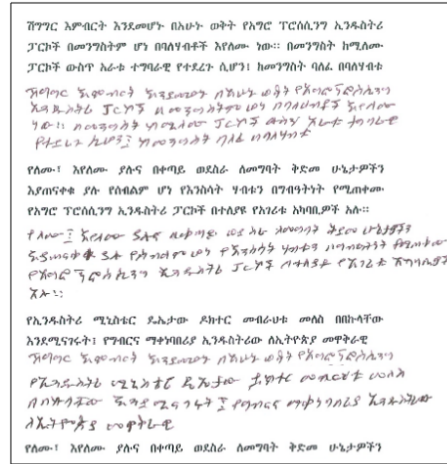 ሽግግር እምብርት እንደመሆኑ በአሁኑ ወቅት የአግሮ ፕሮሰሲንግ ኢንዱስትሪ
ፓርኮች በመንግስትም ሆነ በባለሃብቶች እየለሙ ነው። በመንግስት ከሚለሙ
ፓርኮች ውስጥ አራቱ ተግባራዊ የተደረጉ ሲሆን፣ ከመንግስት ባለፈ በባለሃብቱ
ሽግግር እምብርት እንደመሆኑ በአሁኑ ወቅት የአግሮ ፕሮሰሲንግ
ኢንዱስትሪ ፓርኮች በመንግስትም ሆነ በባለሃብቶች እየለሙ
ነው። በመንግስት ከሚለሙ ፓርኮች ውስጥ አራቱ ተግባራዊ
የተደረጉ ሲሆን፣ ከመንግስት ባለፈ በባለሃብቱ
የለሙ፣ እየለሙ ያሉና በቀጣይ ወደስራ ለመግባት ቅድመ ሁኔታዎችን
እያጠናቀቁ ያሉ የሰብልም ሆነ የእንስሳት ሃብቱን በግብዓትነት የሚጠቀሙ
የአግሮ ፕሮሰሲንግ ኢንዱስትሪ ፓርኮች በተለያዩ የአገሪቱ አካባቢዎች አሉ።
የለሙ፣ እየለሙ ያሉና በቀጣይ ወደ ስራ ለመግባት ቅድመ ሁኔታዎችን
እያጠናቀቁ ያሉ የሰብልም ሆነ የእንስሳት ሃብቱን በግብዓትነት የሚጠቀሙ
የአግሮ ፕሮሰሲንግ ኢንዱስትሪ ፓርኮች በተለያዩ የአገሪቱ አካባቢዎች
አሉ።
የኢንዱስትሪ ሚኒስቴር ዴኤታው ዶክተር መብራህቱ መለስ በበኩላቸው
እንደሚናገሩት፣ የግብርና ማቀነባበሪያ ኢንዱስትሪው ለኢትዮጵያ መዋቅራዊ
ሽግግር እምብርት እንደመሆኑ በአሁኑ ወቅት የአግሮ ፕሮሰሲንግ
የኢንዱስትሪ ሚኒስቴር ዴኤታው ዶክተር መብራህቱ መለስ
በበኩላቸው እንደሚናገሩት፣ የግብርና ማቀነባበሪያ ኢንዱስትሪው
ለኢትዮጵያ መዋቅራዊ
የለሙ፣ እየለሙ ያሉና በቀጣይ ወደስራ ለመግባት ቅድመ ሁኔታዎችን